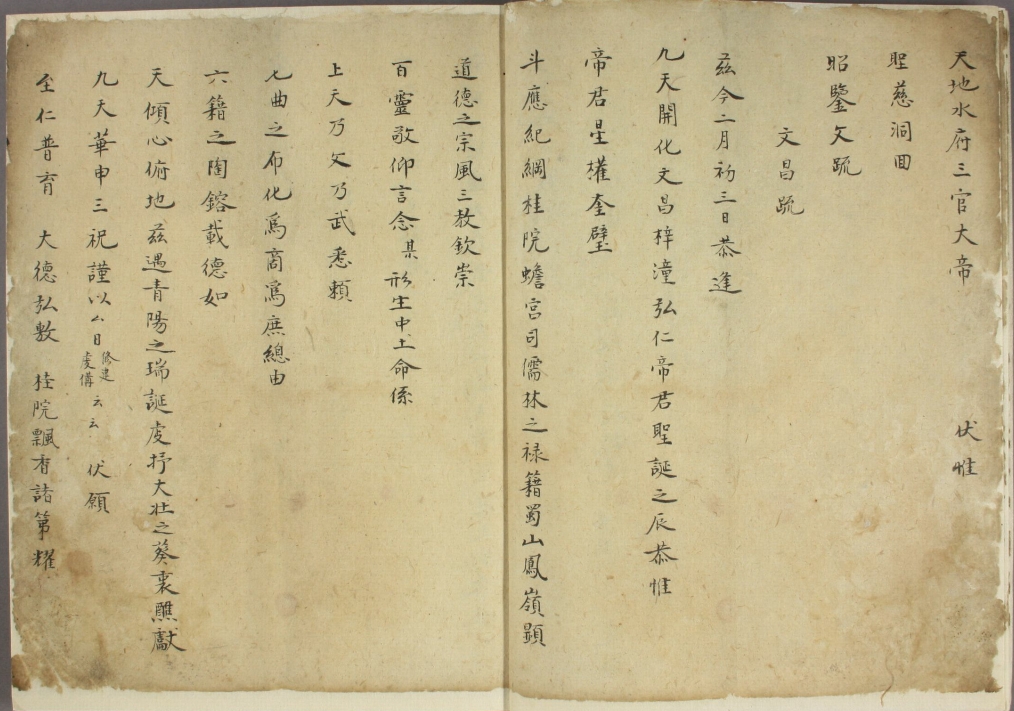 天地水府三官大帝　伏惟
聖慈洞回
昭鑒文疏
文昌疏
茲今二月初三日恭逢
九天開化文昌梓潼弘仁帝君聖誕之辰恭惟
帝君星權奎璧
斗應紀綱桂院蟾宮司儒林之祿籍蜀山鳳嶺顯
道德之宗風三教欽崇
百靈敬仰言念某形生中土命係
上天乃文乃武悉賴
七曲之布化爲商爲庶總由
六籍之陶鎔載德如
天傾心俯地茲遇青陽之瑞誕虔抒大壯之葵衷醮獻
九天華申三祝謹以厶日修建虔備云云　伏願
至仁普育　大德弘敷　桂院飄香諸第耀